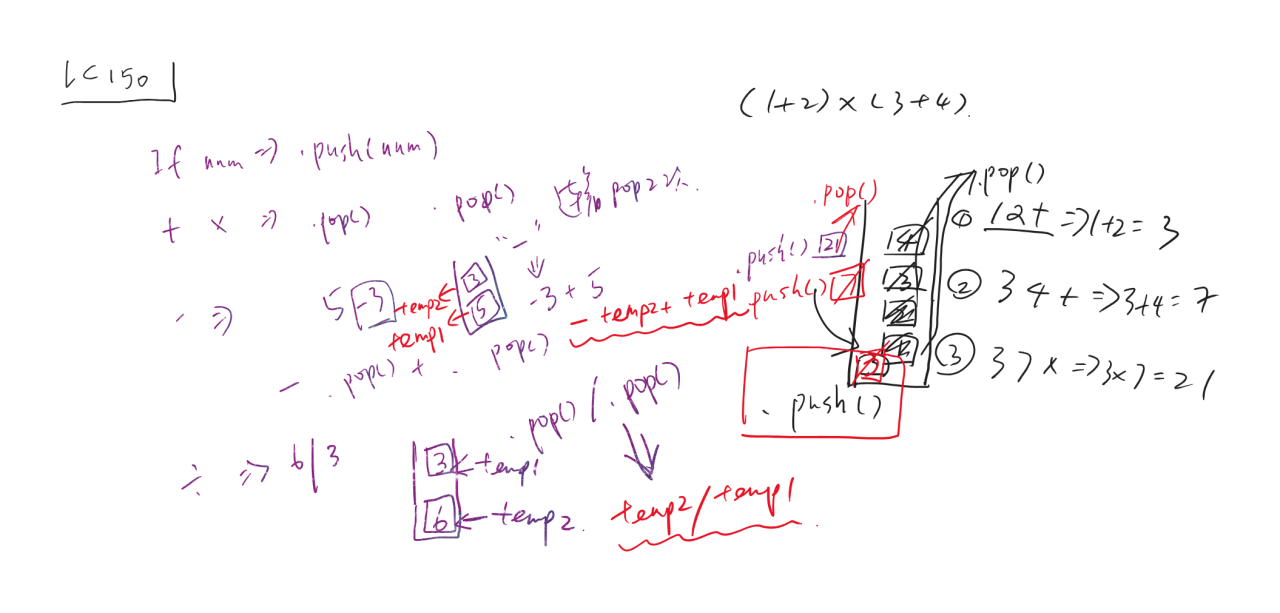 LC150
(1+2)×(3+4).
If num => .push(num)
+ × => .pop() .pop() pop2个.
"-"
- => 5 -3 temp2 3 -3+5
temp1 5 -temp2+temp1
- .pop() + .pop()
÷ => 6/3 .pop() / .pop()
3 temp1
6 temp2. temp2/temp1
.pop() .pop()
.push() 21 4
.push() 7 3
3
.push()
① 12+ => 1+2= 3
② 3 4 + => 3+4= 7
③ 3 7 × => 3×7=21